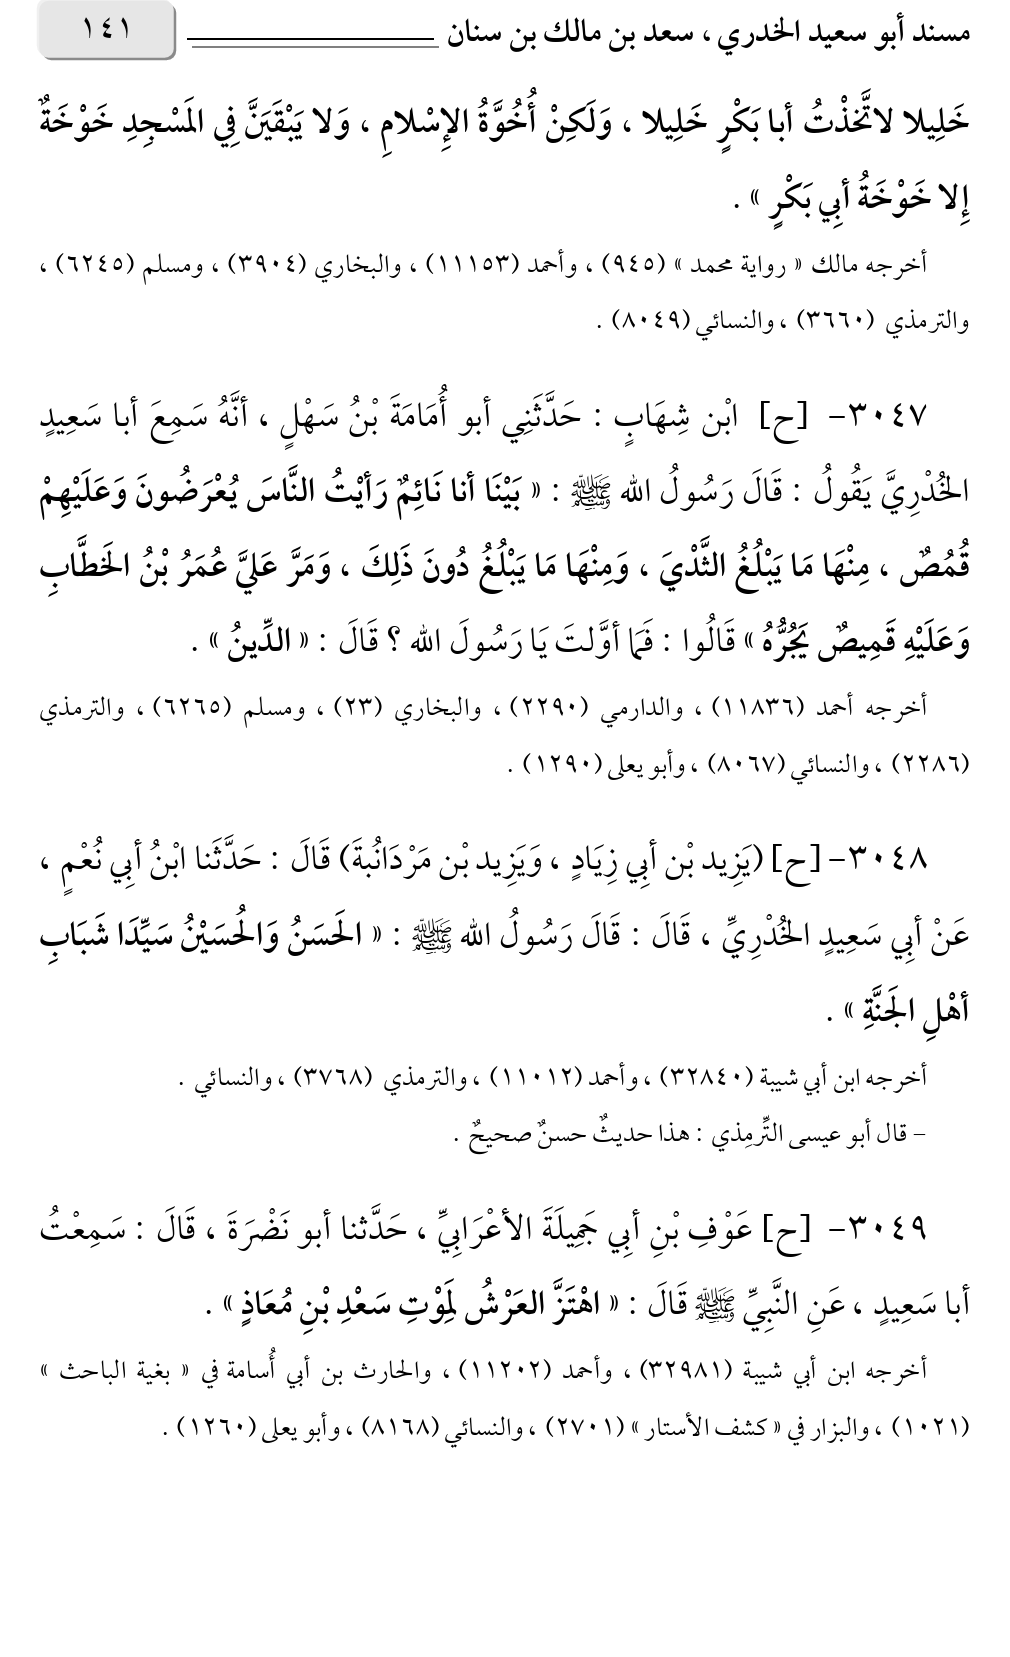 مسند أبو سعيد الخدري ، سعد بن مالك بن سنان ١٤١
خَلِيلا لاتَّخَذْتُ أبا بَكْرٍ خَلِيلا ، وَلَكِنْ أُخُوَّةُ الإِسْلامِ ، وَلا يَبْقَيَنَّ فِي المَسْجِدِ خَوْخَةٌ
إِلا خَوْخَةُ أبِي بَكْرٍ » .
أخرجه مالك « رواية محمد » (٩٤٥) ، وأحمد (١١١٥٣) ، والبخاري (٣٩٠٤) ، ومسلم (٦٢٤٥) ،
والترمذي (٣٦٦٠) ، والنسائي (٨٠٤٩) .
٣٠٤٧- [ح] ابْن شِهَابٍ : حَدَّثَنِي أبو أُمَامَةَ بْنُ سَهْلٍ ، أنَّهُ سَمِعَ أبا سَعِيدٍ
الخُدْرِيَّ يَقُولُ : قَالَ رَسُولُ الله ﷺ : « بَيْنَا أنا نَائِمٌ رَأيْتُ النَّاسَ يُعْرَضُونَ وَعَلَيْهِمْ
قُمُصٌ ، مِنْهَا مَا يَبْلُغُ الثَّدْيَ ، وَمِنْهَا مَا يَبْلُغُ دُونَ ذَلِكَ ، وَمَرَّ عَلَيَّ عُمَرُ بْنُ الخَطَّابِ
وَعَلَيْهِ قَمِيصٌ يَجُرُّهُ » قَالُوا : فَمَا أوَّلتَ يَا رَسُولَ الله ؟ قَالَ : « الدِّينُ » .
أخرجه أحمد (١١٨٣٦) ، والدارمي (٢٢٩٠) ، والبخاري (٢٣) ، ومسلم (٦٢٦٥) ، والترمذي
(٢٢٨٦) ، والنسائي (٨٠٦٧) ، وأبو يعلى (١٢٩٠) .
٣٠٤٨- [ح] (يَزِيد بْن أبِي زِيَادٍ ، وَيَزِيد بْن مَرْدَانُبةَ) قَالَ : حَدَّثَنا ابْنُ أبِي نُعْمٍ ،
عَنْ أبِي سَعِيدٍ الخُدْرِيِّ ، قَالَ : قَالَ رَسُولُ الله ﷺ : « الحَسَنُ وَالحُسَيْنُ سَيِّدَا شَبَابِ
أهْلِ الجَنَّةِ » .
أخرجه ابن أبي شيبة (٣٢٨٤٠) ، وأحمد (١١٠١٢) ، والترمذي (٣٧٦٨) ، والنسائي .
– قال أبو عيسى التِّرمِذي : هذا حديثٌ حسنٌ صحيحٌ .
٣٠٤٩- [ح] عَوْفِ بْنِ أبِي جَمِيلَةَ الأعْرَابِيِّ ، حَدَّثنا أبو نَضْرَةَ ، قَالَ : سَمِعْتُ
أبا سَعِيدٍ ، عَنِ النَّبِيِّ ﷺ قَالَ : « اهْتَزَّ العَرْشُ لِمَوْتِ سَعْدِ بْنِ مُعَاذٍ » .
أخرجه ابن أبي شيبة (٣٢٩٨١) ، وأحمد (١١٢٠٢) ، والحارث بن أبي أُسامة في « بغية الباحث »
(١٠٢١) ، والبزار في « كشف الأستار » (٢٧٠١) ، والنسائي (٨١٦٨) ، وأبو يعلى (١٢٦٠) .